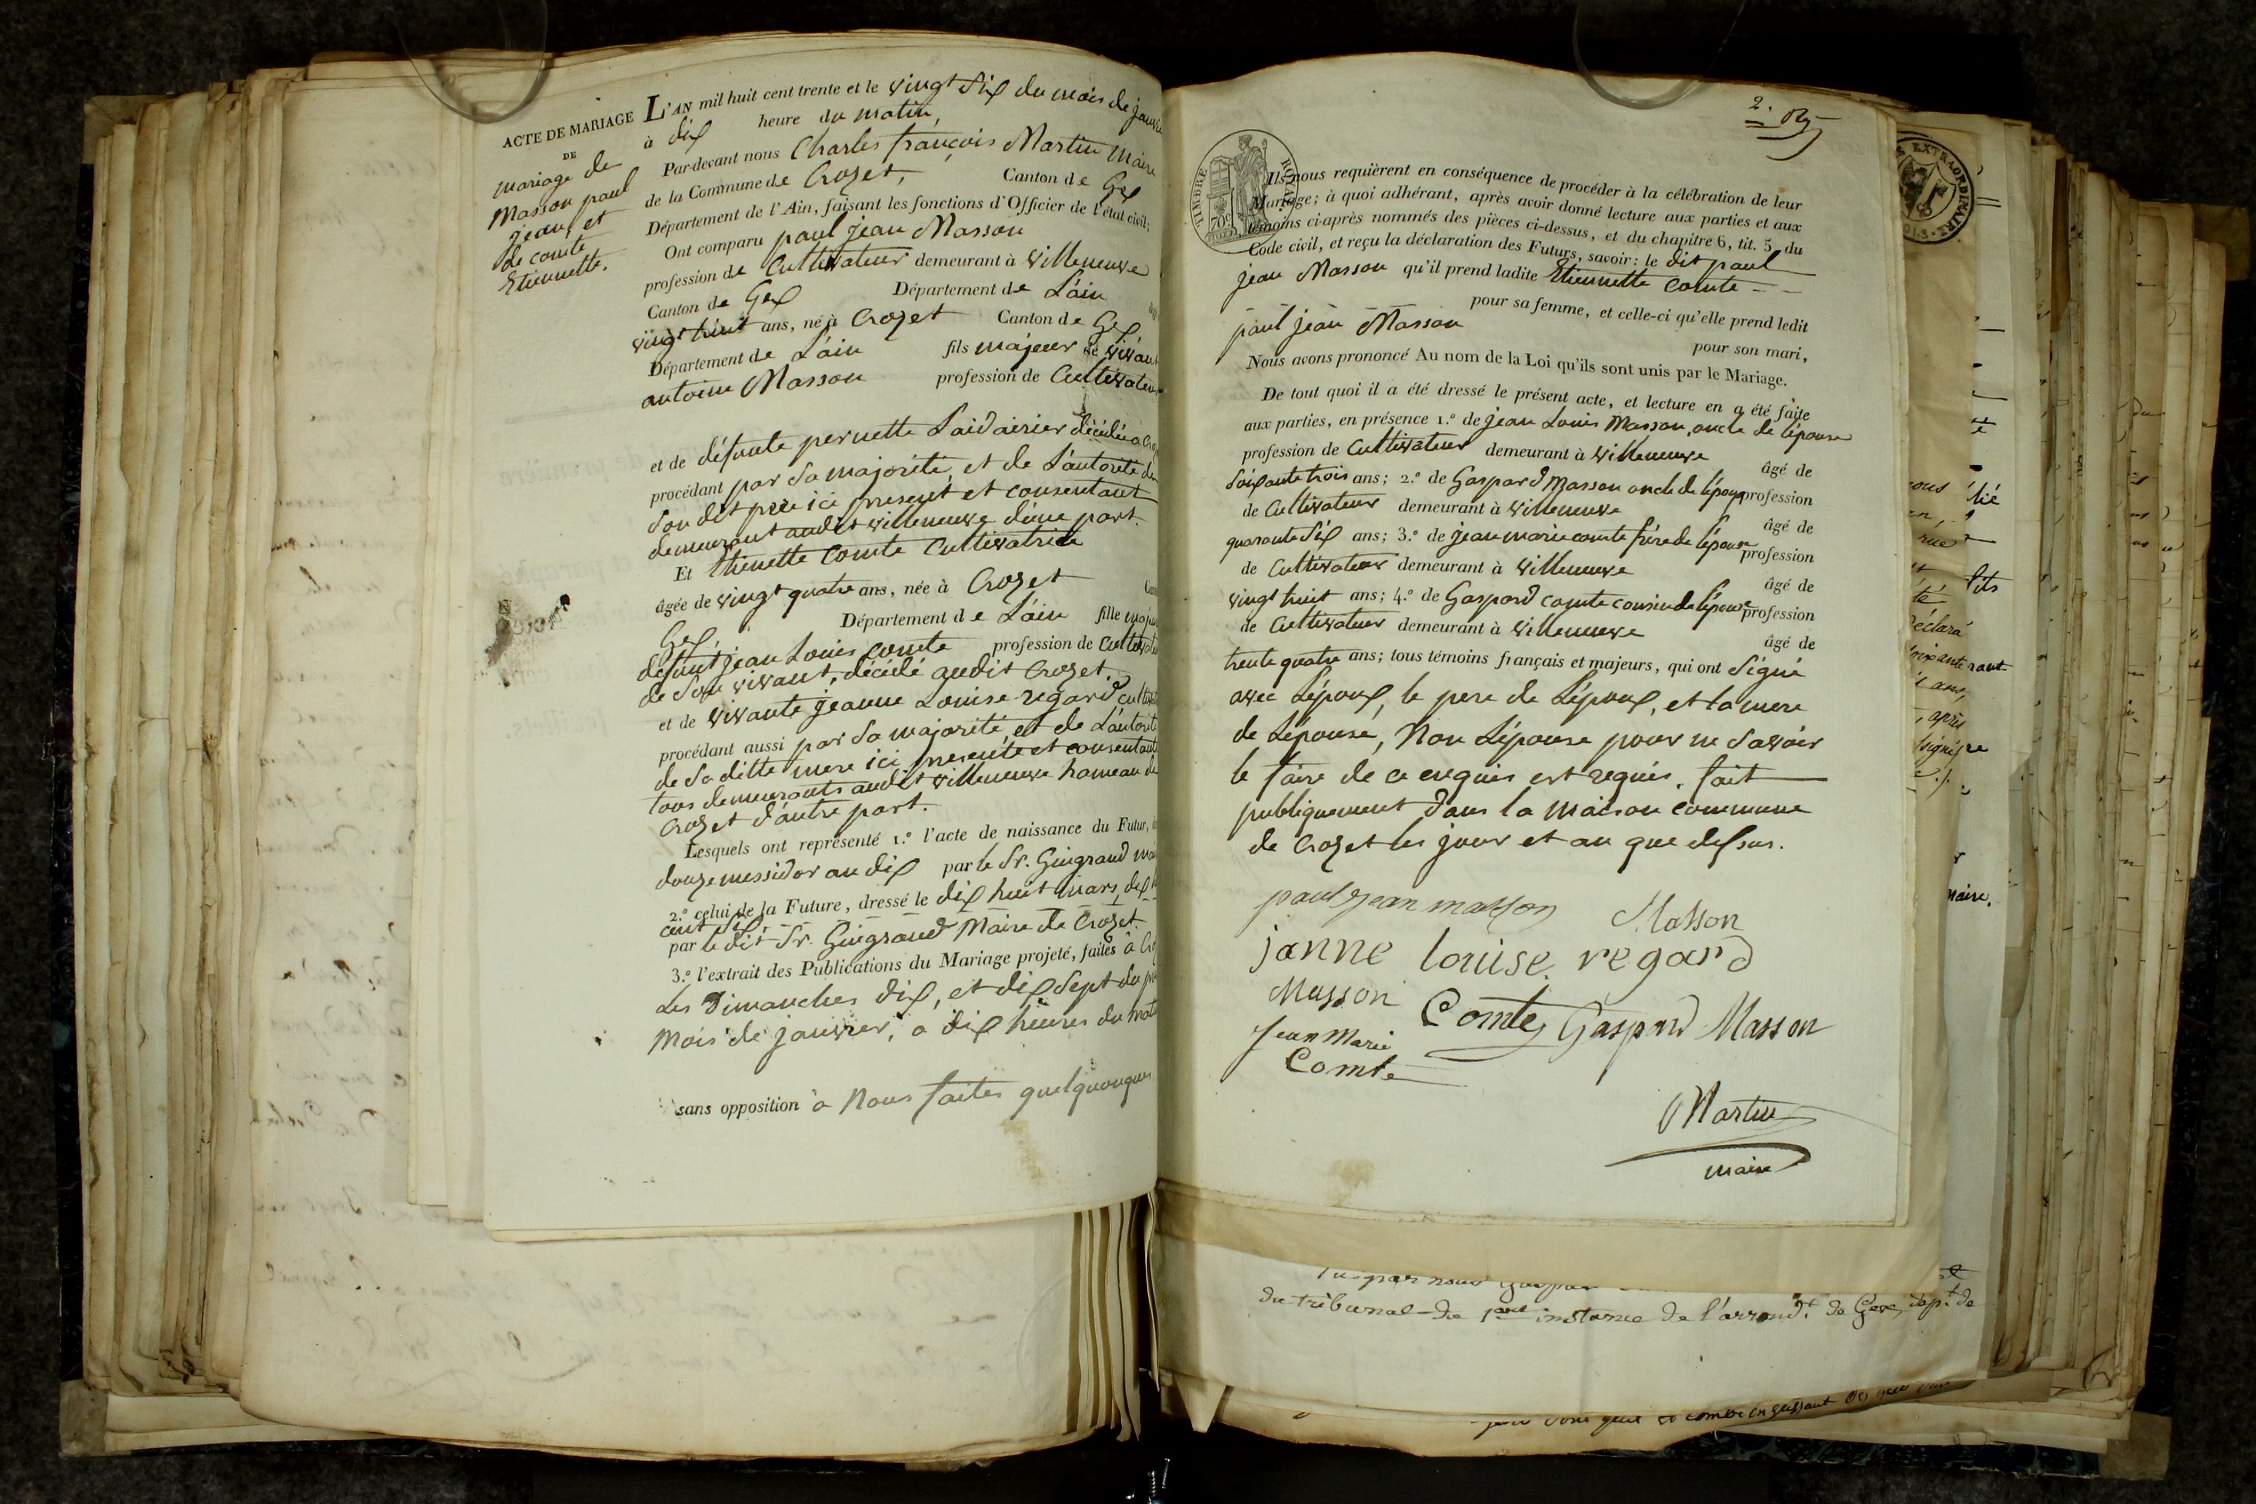 ACTE DE MARIAGE
DE
mariage de
Masson paul
jean, et
de comte
Etiennette.
L'AN mil huit cent trente et le vingt six du mois de janvie
à dix heure du matin,
Par-devant nous Charles françois Martin Maire
de la Commune de Crozet, Canton de Gex
Département de l'Ain, faisant les fonctions d'Officier de l'état civil;
Ont comparu paul jean Masson
profession de Cultivateur demeurant à Villeneuve
Canton de Gex Département de L'ain
vingt huit ans, né à Crozet Canton de Gex
Département de L'ain fils majeur de vivant
antoine Masson profession de Cultivateur
et de défunte pernette Laidairier décédée à Cro
procédant par sa majorité, et de L'autorité de
son dit père ici present et consentant
demeurant audit villeneuve d'une part.
Et Etienette Comte Cultivatrice
âgée de vingt quatre ans, née à Crozet Can
Gex, Département de L'ain fille maje
defunt jean Louis comte profession de Cultivate
de son vivant, décédé audit Crozet.
et de vivante jeanne Louise regard, cultiv
procédant aussi par sa majorité, et de L'autorit
de sa ditte mere ici presente et consentante
tous demeurants audit villeneuve hameau de
Crozet d'autre part.
Lesquels ont représenté 1.º l'acte de naissance du Futur,
douze messidor an dix par le Sr. Gingrand ma
2.º celui de la Future, dressé le dix huit mars, dix h
cent six,
par le dit Sr. Gingrand Maire de Crozet.
3.º l'extrait des Publications du Mariage projeté, faites à Cro
Les Dimanches dix, et dix sept du pr
Mois de janvier, a dix heures du mati
sans opposition à Nous faites quelquonques
2.
TIMBRE ROYAL
70c
Ils nous requièrent en conséquence de procéder à la célébration de leur
Mariage; à quoi adhérant, après avoir donné lecture aux parties et aux
témoins ci-après nommés des pièces ci-dessus, et du chapitre 6, tit. 5, du
Code civil, et reçu la déclaration des Futurs, savoir: le dit paul
jean Masson qu'il prend ladite Etiennette Comte
pour sa femme, et celle-ci qu'elle prend ledit
paul jean Masson
pour son mari,
Nous avons prononcé Au nom de la Loi qu'ils sont unis par le Mariage.
De tout quoi il a été dressé le présent acte, et lecture en a été faite
aux parties, en présence 1.º de jean Louis Masson, oncle de l'épouse
profession de Cultivateur demeurant à Villeneuve âgé de
soixante trois ans; 2.º de Gaspard Masson oncle de l'époux profession
de Cultivateur demeurant à Villeneuve âgé de
quarante six ans; 3.º de jean marie comte frère de l'épouse profession
de Cultivateur demeurant à Villeneuve âgé de
vingt huit ans; 4.º de Gaspard comte cousin de l'épouse profession
de Cultivateur demeurant à Villeneuve âgé de
trente quatre ans; tous témoins français et majeurs, qui ont signé
avec L'époux, le pere de L'époux, et la mere
de L'épouse, Non L'épouse pour ne savoir
le faire de ce enquis est requis, fait
publiquement dans la Maison commune
de Crozet les jour et an que dessus.
paul jean masson Masson
janne louise regard
Masson Comte Gaspard Masson
jean Marie
Comte
Martin
maire
du tribunal de 1ere instance de l'arrondt. de Gex, dépt. de
EXTRAORDINAIRE